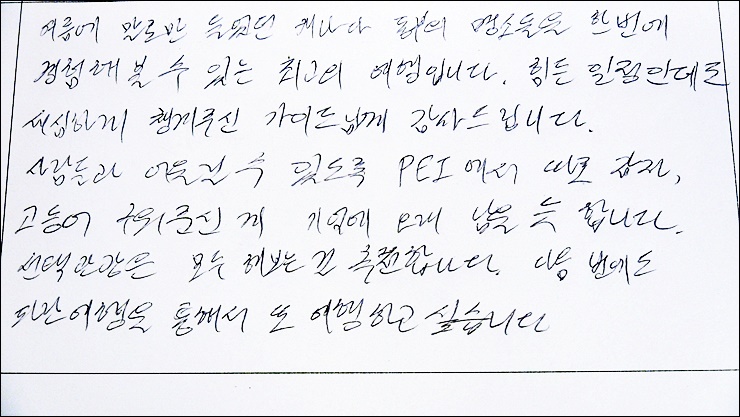 여름에 말로만 들었던 캐나다 동부의 명소들을 한번에
경험해 볼 수 있는 최고의 여행입니다. 힘든 일정인데도
세심하게 챙겨주신 가이드님께 감사드립니다.
사람들과 어울릴 수 있도록 PEI에서 따로 감자,
고등어 구워주신 게 기억에 오래 남을 듯 합니다.
선택관광은 모두 해보는 걸 추천합니다. 다음 번에도
여행을 통해서 또 여행하고 싶습니다